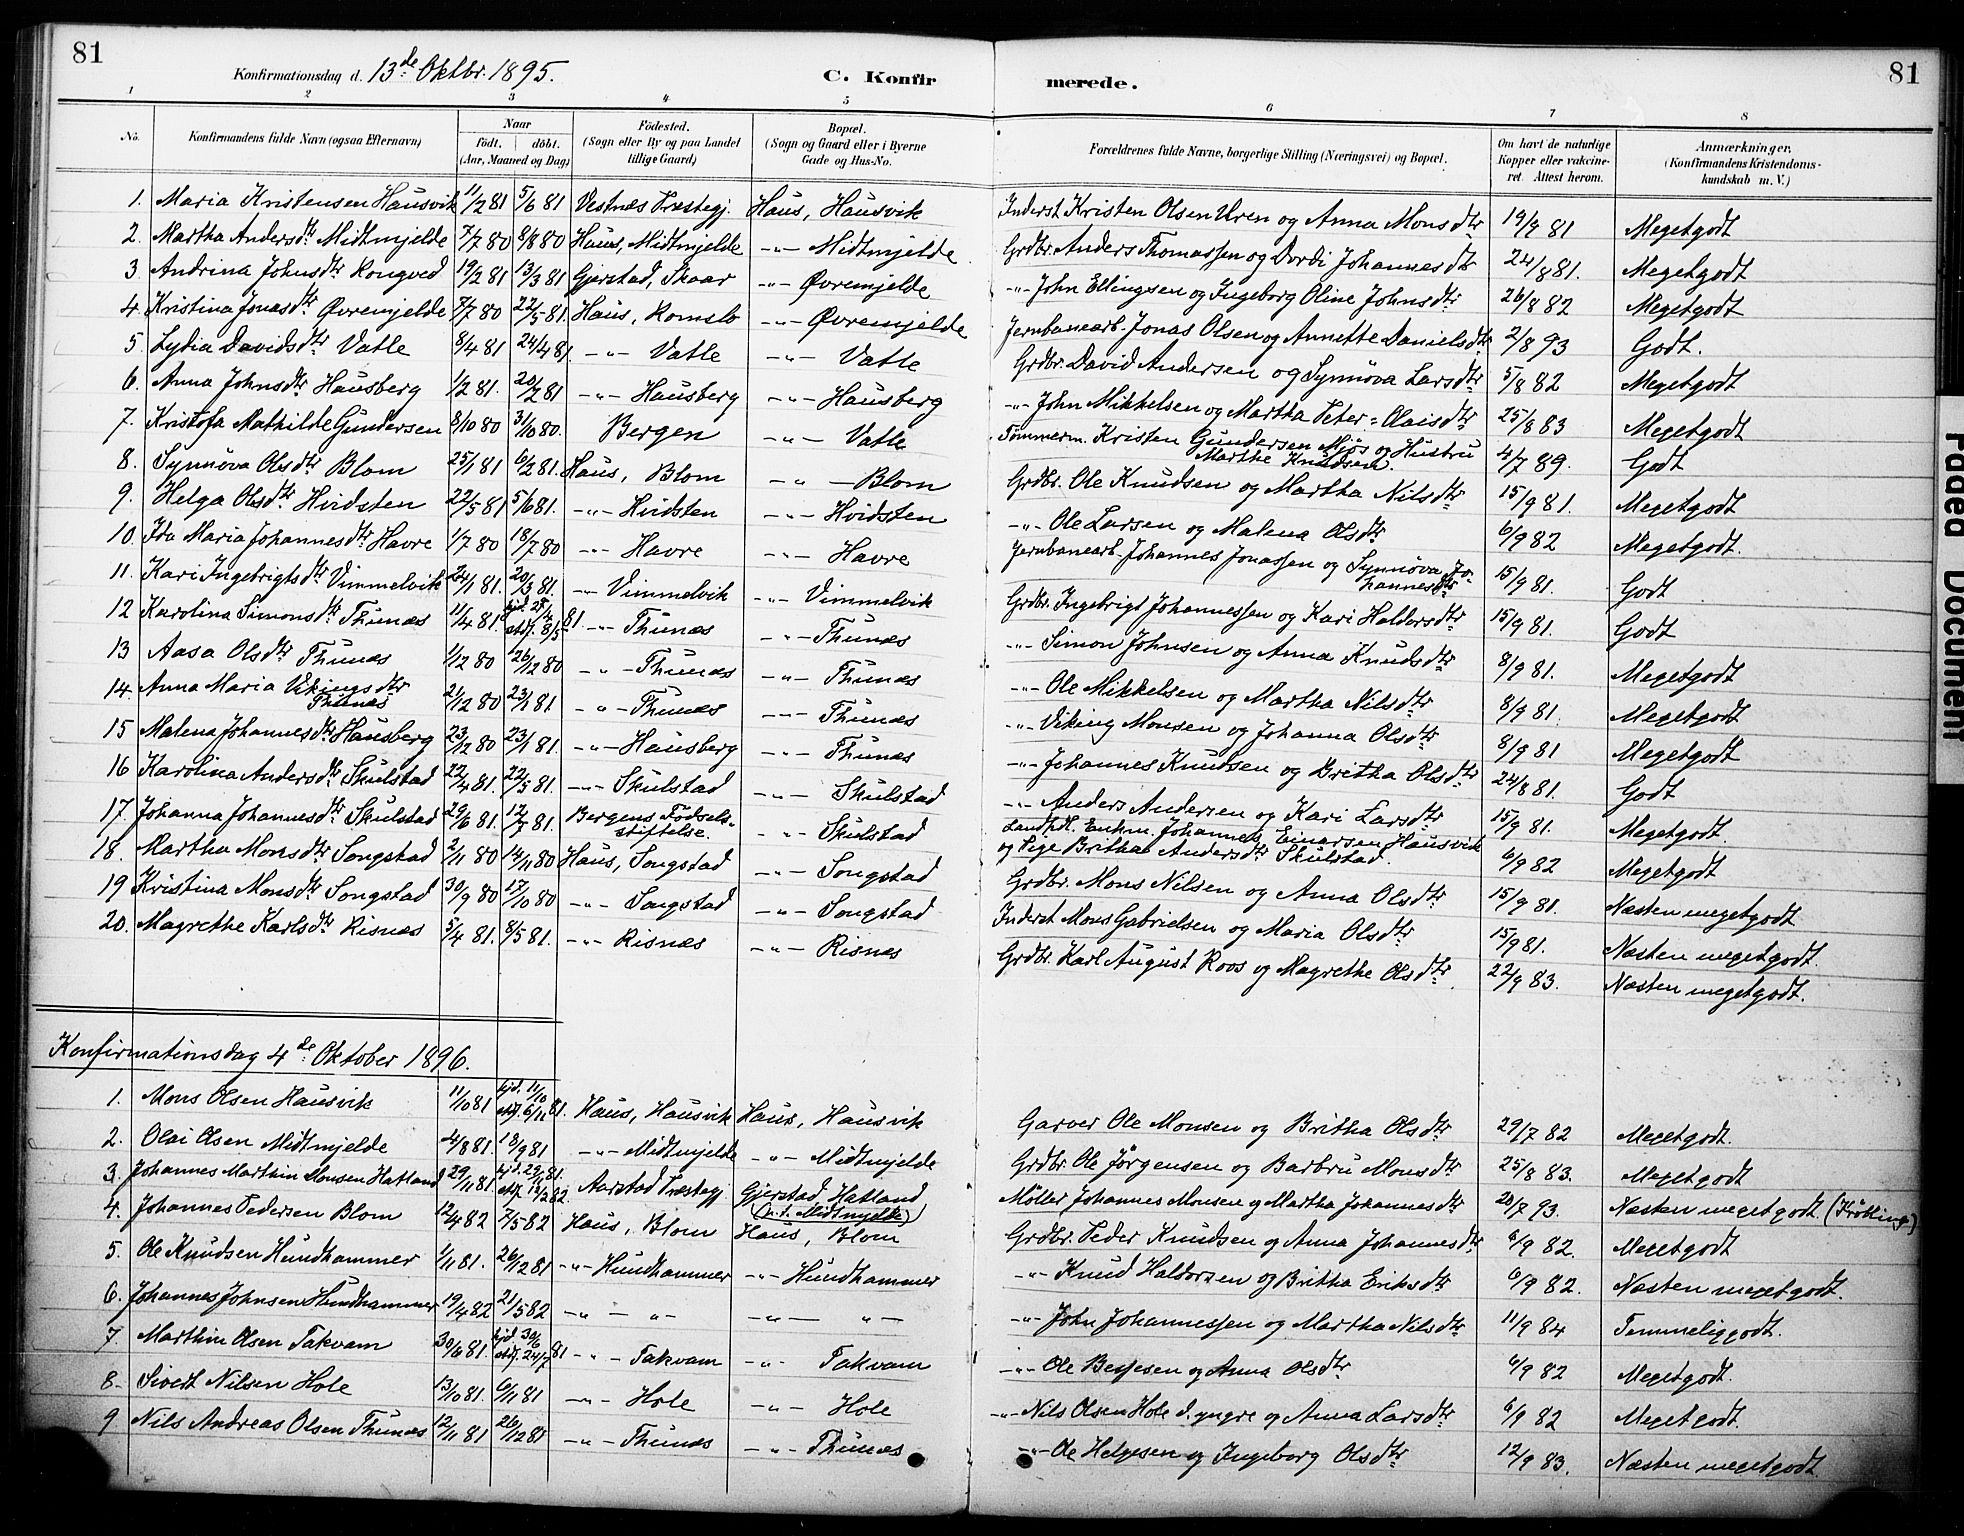 81
Konfirmationsdag d. 13de Oktbr. 1895.
C. Konfirmerede.
81
1 2 3 4 5 6 7 8
No. Konfirmandens fulde Navn (ogsaa Efternavn) Naar födt. döbt. (Aar, Maaned og Dag) Födested. (Sogn eller By og paa Landet tillige Gaard) Bopæl. (Sogn og Gaard eller i Byerne Gade og Hus-No. Forældrenes fulde Navne, borgerlige Stilling (Næringsvei) og Bopæl. Om havt de naturlige Kopper eller vakcineret. Attest herom. Anmærkninger, (Konfirmandens Kristendomskundskab m. V.)
1. Maria Kristensen Hausvik 11/2 81 5/6 81 Vestnes Præstegj. Haus, Hausvik Inderst Kristen Olsen Uren og Anna Monsdtr 19/9 81 Megetgodt
2. Martha Andersdtr Midtmjelde 7/7 80 8/8 80 Haus, Midtmjelde -"- Midtmjelde Grdbr. Anders Thomassen og Dordi Johannesdtr 24/8 81. Megetgodt
3. Andrina Johnsdtr Rongved 19/2 81 13/3 81 Gjerstad, Skaar -"- Øvremjelde -"- John Ellingsen og Ingeborg Oline Johnsdtr 26/8 82 Megetgodt
4. Kristina Jonasdtr Øvremjelde 7/7 80 22/5 81. Haus, Romslo -"- Øvremjelde Jernbanearb. Jonas Olsen og Annette Danielsdtr 2/8 93 Godt.
5. Lydia Davidsdtr Vatle 8/4 81 24/4 81 -"- Vatle -"- Vatle Grdbr. David Andersen og Synnöva Larsdtr 5/8 82 Megetgodt
6. Anna Johnsdtr Hausberg 1/2 81. 20/2 81 -"- Hausberg -"- Hausberg -"- John Mikkelsen og Martha Peter-Olaisdtr 25/8 83 Megetgodt
7. Kristofa Mathilde Gundersen 8/10 80 31/10 80. Bergen -"- Vatle Tömmerm. Kristen Gundersen Mjös og Hustru Marthe Knudsen. 4/7 89. Godt
8. Synnöva Olsdtr Blom 25/1 81 6/2 81. Haus, Blom -"- Blom Grdbr. Ole Knudsen og Martha Nilsdtr 15/9 81. Megetgodt
9. Helga Olsdtr Hvidsten 22/5 81 5/6 81. -"- Hvidsten -"- Hvidsten -"- Ole Larsen og Malena Olsdtr 6/9 82 Megetgodt.
10. Ida Maria Johannesdtr Havre 1/7 80 18/7 80 -"- Havre -"- Havre Jernbanearb. Johannes Jonassen og Synnöva Johannesdtr 15/9 81. Godt
11. Kari Ingebrigtsdtr Vimmelvik 24/1 81. 20/3 81. -"- Vimmelvik -"- Vimmelvik Grdbr. Ingebrigt Johannessen og Kari Haldorsdtr 15/9 81. Godt
12 Karolina Simonsdtr Thunæs 11/4 81. stdf. 8/5 81 -"- Thunæs -"- Thunæs -"- Simon Johnsen og Anna Knudsdtr 8/9 81. Megetgodt
13 Aasa Olsdtr Thunæs 1/12 80 26/12 80 -"- Thunæs -"- Thunæs -"- Ole Mikkelsen og Martha Nilsdtr 8/9 81. Megetgodt
14. Anna Maria Vikingsdtr Thunæs 21/12 80 23/1 81 -"- Thunæs -"- Thunæs -"- Viking Monsen og Johanna Olsdtr 8/9 81 Megetgodt
15 Malena Johannesdtr Hausberg 23/12 80 23/1 81. -"- Hausberg -"- Thunæs -"- Johannes Knudsen og Britha Olsdtr 24/8 81. Godt
16 Karolina Andersdtr Skulstad 22/4 81. 22/5 81. -"- Skulstad -"- Skulstad -"- Anders Andersen og Kari Larsdtr 15/9 81. Megetgodt.
17. Johanna Johannesdtr Skulstad 29/6 81. 12/7 81. Bergens Födselsstiftelse. -"- Skulstad Landhdl. Enkm. Johannes Einarsen Hausvik og Pige Britha Andersdtr Skulstad. 6/9 82 Megetgodt
18. Martha Monsdtr Songstad 2/11 80 14/11 80 Haus, Songstad -"- Songstad Grdbr. Mons Nilsen og Anna Olsdtr 15/9 81. Næsten megetgodt
19 Kristina Monsdtr Songstad 30/9 80 17/10 80 -"- Songstad -"- Songstad Inderst Mons Gabrielsen og Maria Olsdtr 15/9 81. Næsten megetgodt.
20. Magrethe Karlsdtr Risnæs 5/4 81. 8/5 81. -"- Risnæs -"- Risnæs Grdbr. Karl August Roos og Magrethe Olsdtr. 22/9 83. Næsten megetgodt.
Konfirmationsdag 4de Oktober 1896.
1. Mons Olsen Hausvik 11/10 81 hjd. 11/10 stdf. 6/11 81. Haus, Hausvik Haus, Hausvik Garver Ole Monsen og Britha Olsdtr 29/7 82 Megetgodt.
2. Olai Olsen Midtmjelde 4/8 81. 18/9 81 -"- Midtmjelde -"- Midtmjelde Grdbr. Ole Jörgensen og Barbru Monsdtr 25/8 83. Megetgodt
3. Johannes Marthin Monsen Hatland 29/11 81 hjd. 29/11 81. stdf. 12/2 82 Aarstad Præstegj. Gjerstad, Hatland (n.t. Midtmjelde) Möller Johannes Monsen og Martha Johannesdtr 20/7 93. Næsten megetgodt. (Krökling)
4. Johannes Pedersen Blom 12/4 82 7/5 82 Haus, Blom Haus, Blom Grdbr. Peder Knudsen og Anna Johannesdtr 6/9 82. Megetgodt
5. Ole Knudsen Hundhammer 1/11 81. 26/12 81 -"- Hundhammer -"- Hundhammer -"- Knud Haldorsen og Britha Eriksdtr 6/9 82. Næsten megetgodt.
6. Johannes Johnsen Hundhammer 19/4 82 21/5 82 -"- -"- -"- -"- -"- John Johannessen og Martha Nilsdtr 11/9 84 Temmeliggodt.
7. Marthin Olsen Takvam 30/6 81. hjd. 30/6 stdf. 24/7 81 -"- Takvam -"- Takvam -"- Ole Bessesen og Anna Olsdtr 6/9 82 Megetgodt.
8. Sivert Nilsen Hole 13/10 81. 6/11 81 -"- Hole -"- Hole -"- Nils Olsen Hole d. yngre og Anna Larsdtr 6/9 82 Megetgodt.
9 Nils Andreas Olsen Thunæs 12/11 81 26/12 81 -"- Thunæs -"- Thunæs -"- Ole Helgesen og Ingeborg Olsdtr 12/9 83. Næsten megetgodt
Paged Document